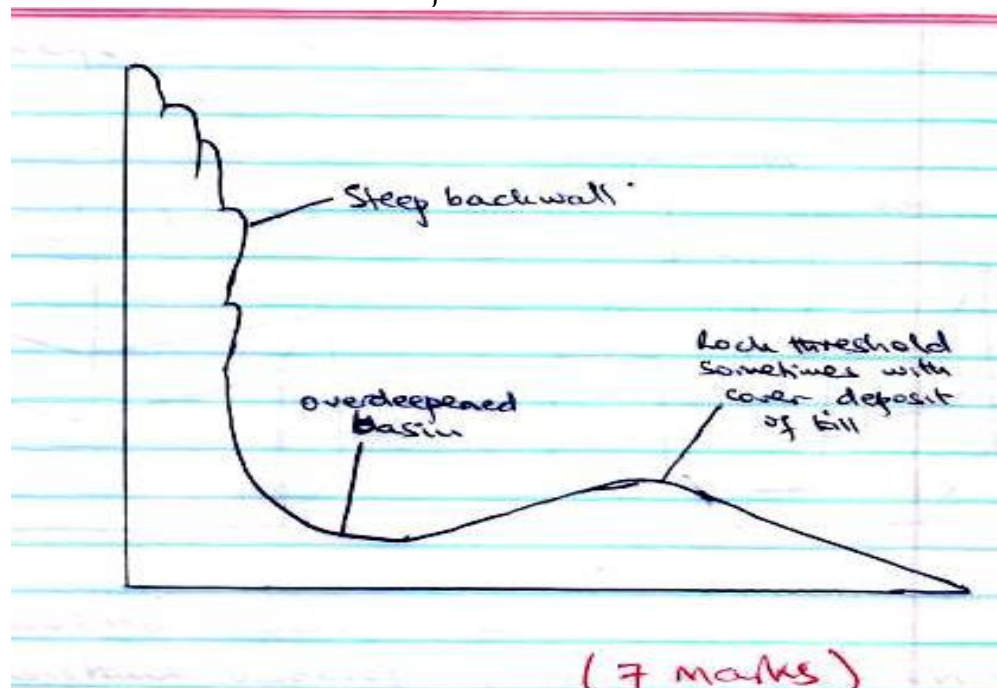 Steep backwall
overdeepened
basin
Rock threshold
sometimes with
cover deposit
of till
(7 marks)